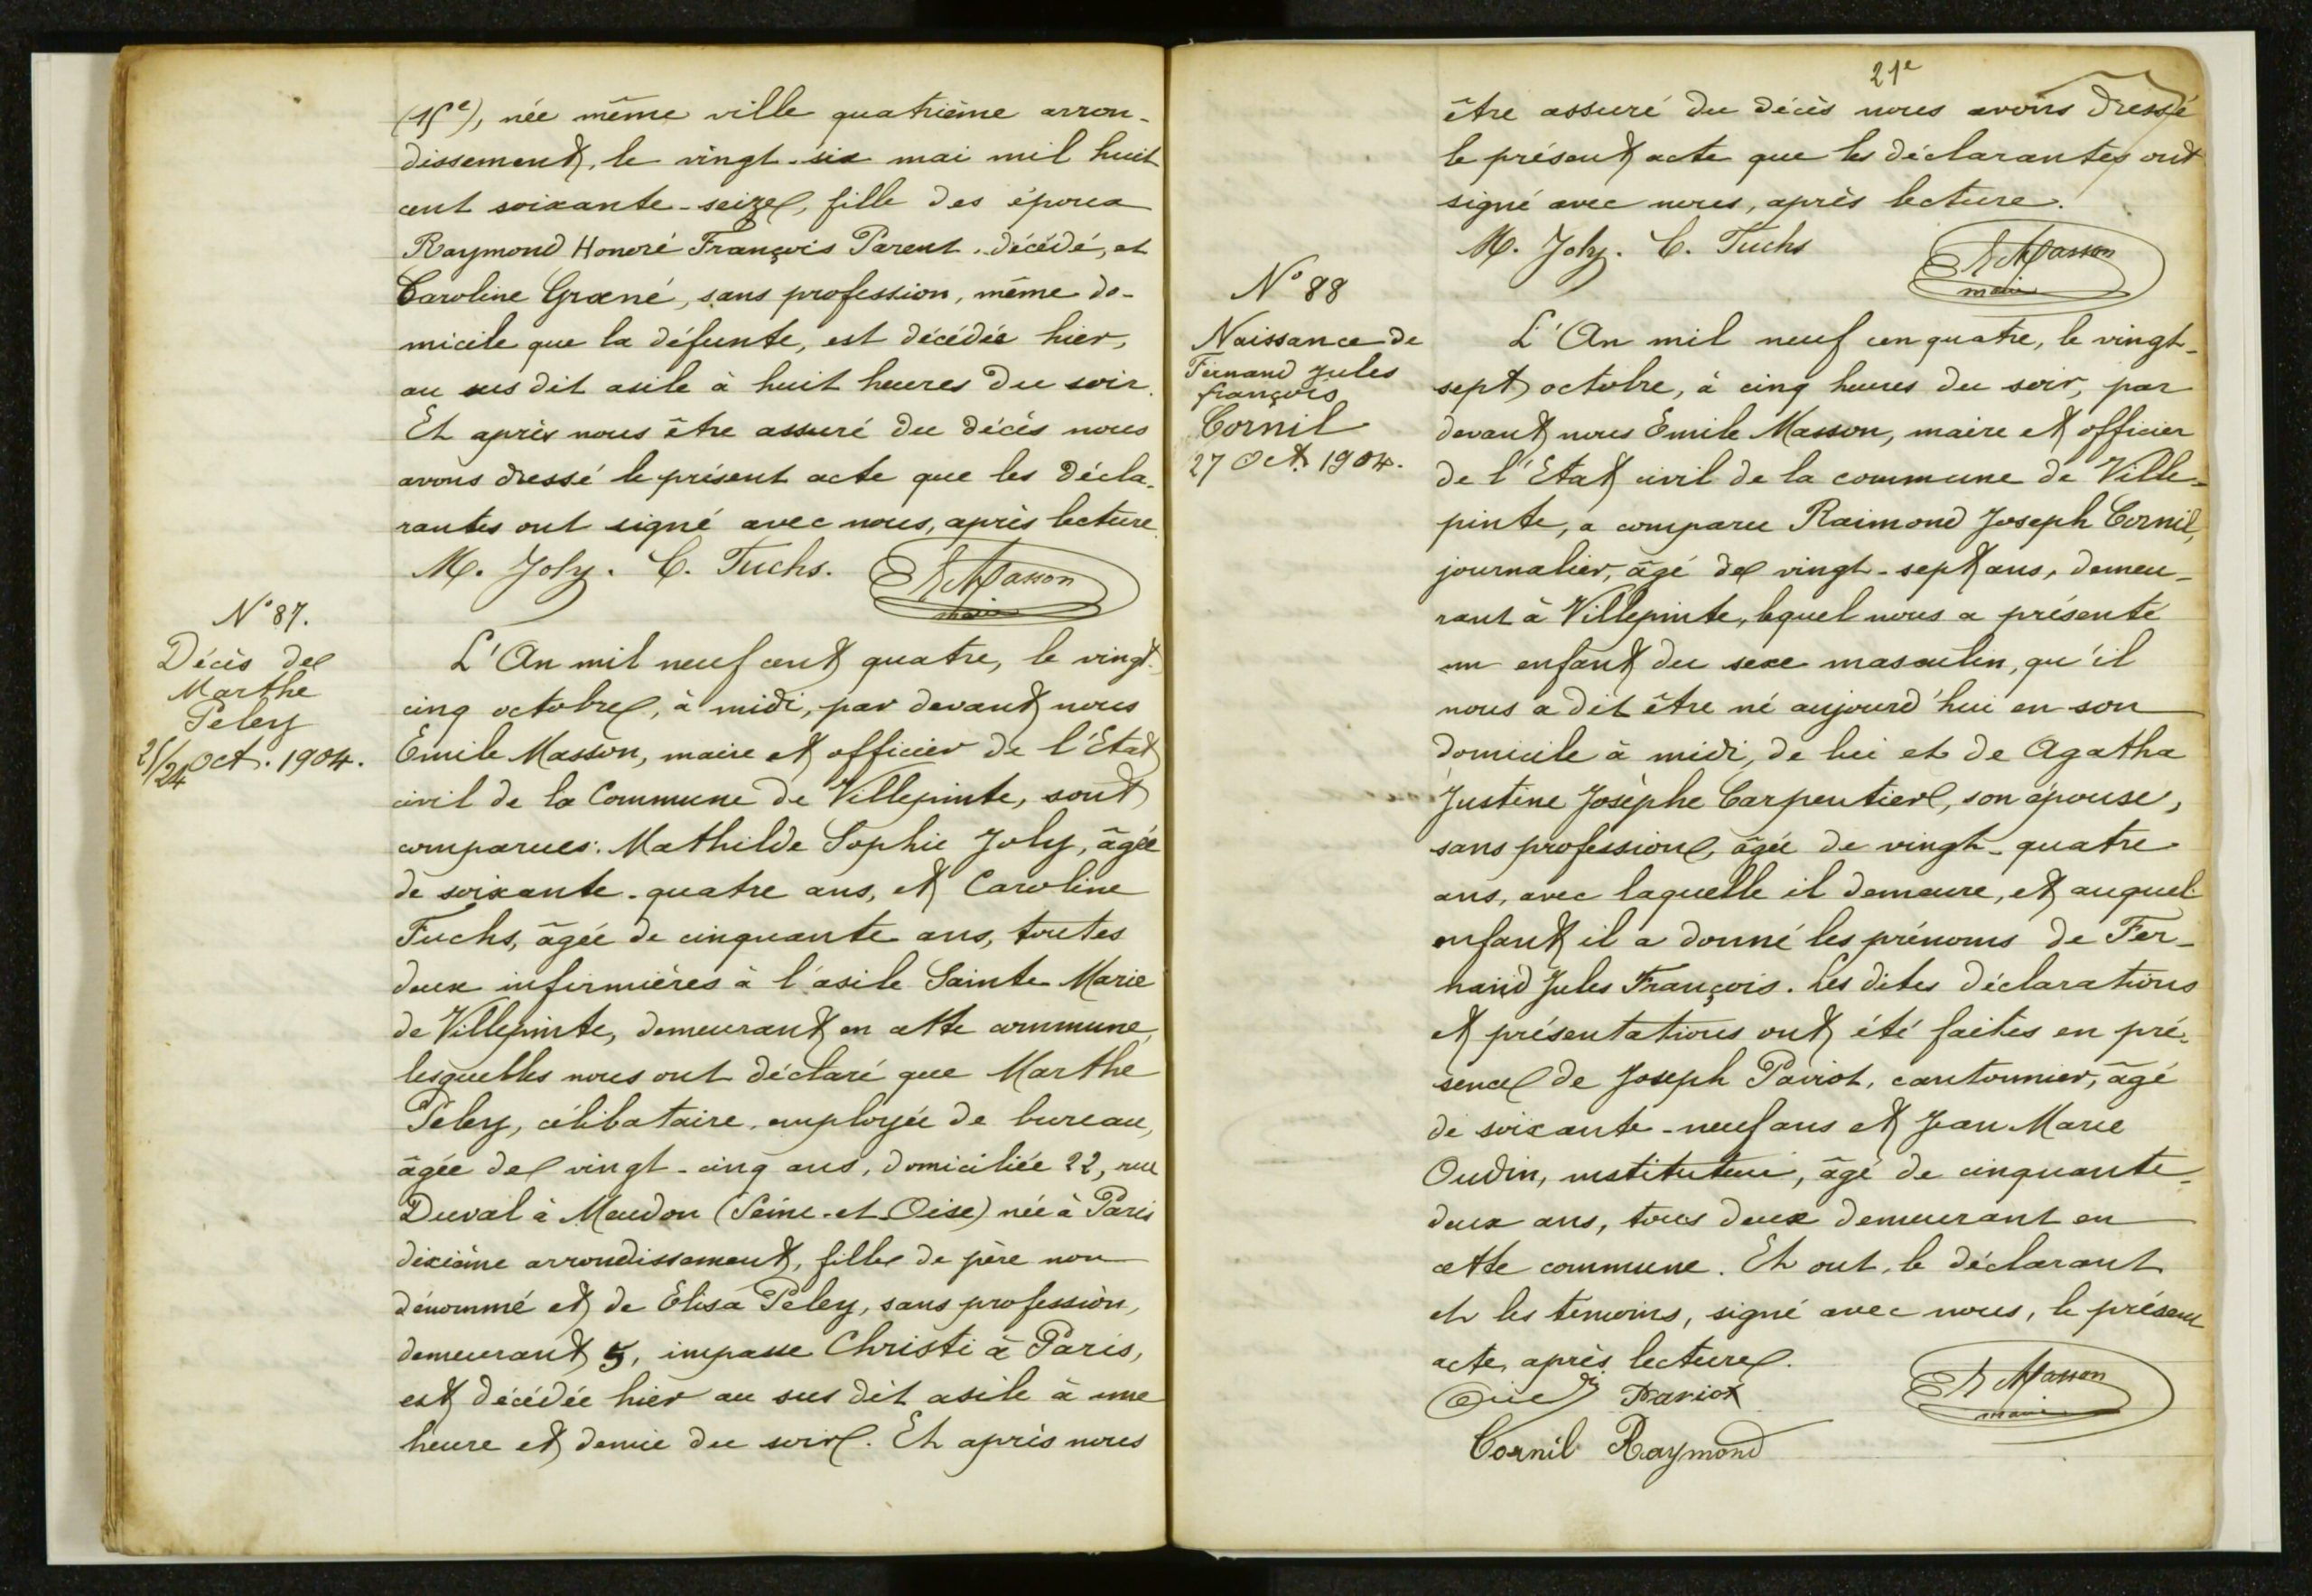 (15e), née même ville quatrième arron-
dissement, le vingt-six mai mil huit
cent soixante-seize, fille des époux
Raymond Honoré François Parent, décédé, et
Caroline Grœné, sans profession, même do-
micile que la défunte, est décédée hier,
au sus dit asile à huit heures du soir.
Et après nous être assuré du décès nous
avons dressé le présent acte que les décla-
rantes ont signé avec nous, après lecture.
M. Joly. C. Fuchs. E Masson
maire
N° 87.
Décès de
Marthe
Peley
25/24 Oct. 1904.
L'An mil neuf cent quatre, le vingt-
cinq octobre, à midi, par devant nous
Emile Masson, maire et officier de l'Etat
civil de la Commune de Villepinte, sont
comparues: Mathilde Sophie Joly, âgée
de soixante-quatre ans, et Caroline
Fuchs, âgée de cinquante ans, toutes
deux infirmières à l'asile Sainte Marie
de Villepinte, demeurant en cette commune,
lesquelles nous ont déclaré que Marthe
Peley, célibataire, employée de bureau,
âgée de vingt-cinq ans, domiciliée 22, rue
Duval à Meudon (Seine-et-Oise) née à Paris
dixième arrondissement, fille de père non
dénommé et de Elisa Peley, sans profession,
demeurant 5, impasse Christi à Paris,
est décédée hier au sus dit asile à une
heure et demie du soir. Et après nous
21e
être assuré du décès nous avons dressé
le présent acte que les déclarantes ont
signé avec nous, après lecture.
M. Joly. C. Fuchs E Masson
maire
N° 88
Naissance de
Fernand Jules
françois
Cornil
27 Oct. 1904.
L'An mil neuf cen quatre, le vingt-
sept octobre, à cinq heures du soir, par
devant nous Emile Masson, maire et officier
de l'Etat civil de la commune de Ville-
pinte, a comparu Raimond Joseph Cornil,
journalier, âgé de vingt-sept ans, demeu-
rant à Villepinte, lequel nous a présenté
un enfant du sexe masculin, qu'il
nous a dit être né aujourd'hui en son
domicile à midi, de lui et de Agatha
Justine Josèphe Carpentier, son épouse,
sans profession, âgée de vingt-quatre
ans, avec laquelle il demeure, et auquel
enfant il a donné les prénoms de Fer-
nand Jules François. Les dites déclarations
et présentations ont été faites en pré-
sence de Joseph Pariot, cantonnier, âgé
de soixante-neuf ans et Jean Marie
Oudin, instituteur, âgé de cinquante-
deux ans, tous deux demeurant en
cette commune. Et ont, le déclarant
et les témoins, signé avec nous, le présent
acte, après lecture.
Pariot E Masson
maire
Cornil Raymond